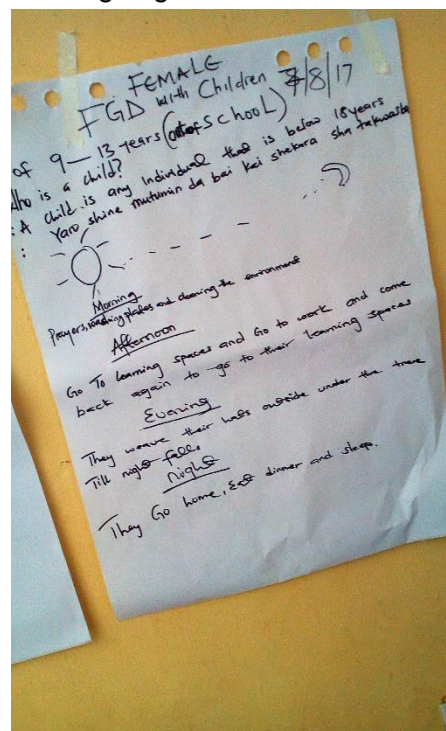 FEMALE
FGD with Children 7/8/17
of 9 – 13 years (out of School)
Who is a child?
: A child is any Individual that is below 18 years
: Yaro shine mutumin da bai kai shekara sha takwas ba
Morning
Prayers, washing plates and cleaning the environment
Afternoon
Go To learning spaces and Go to work and come
back again to go to their learning spaces
Evening
They weave their hats outside under the tree
Till night falls
Night
They Go home, Eat dinner and sleep.